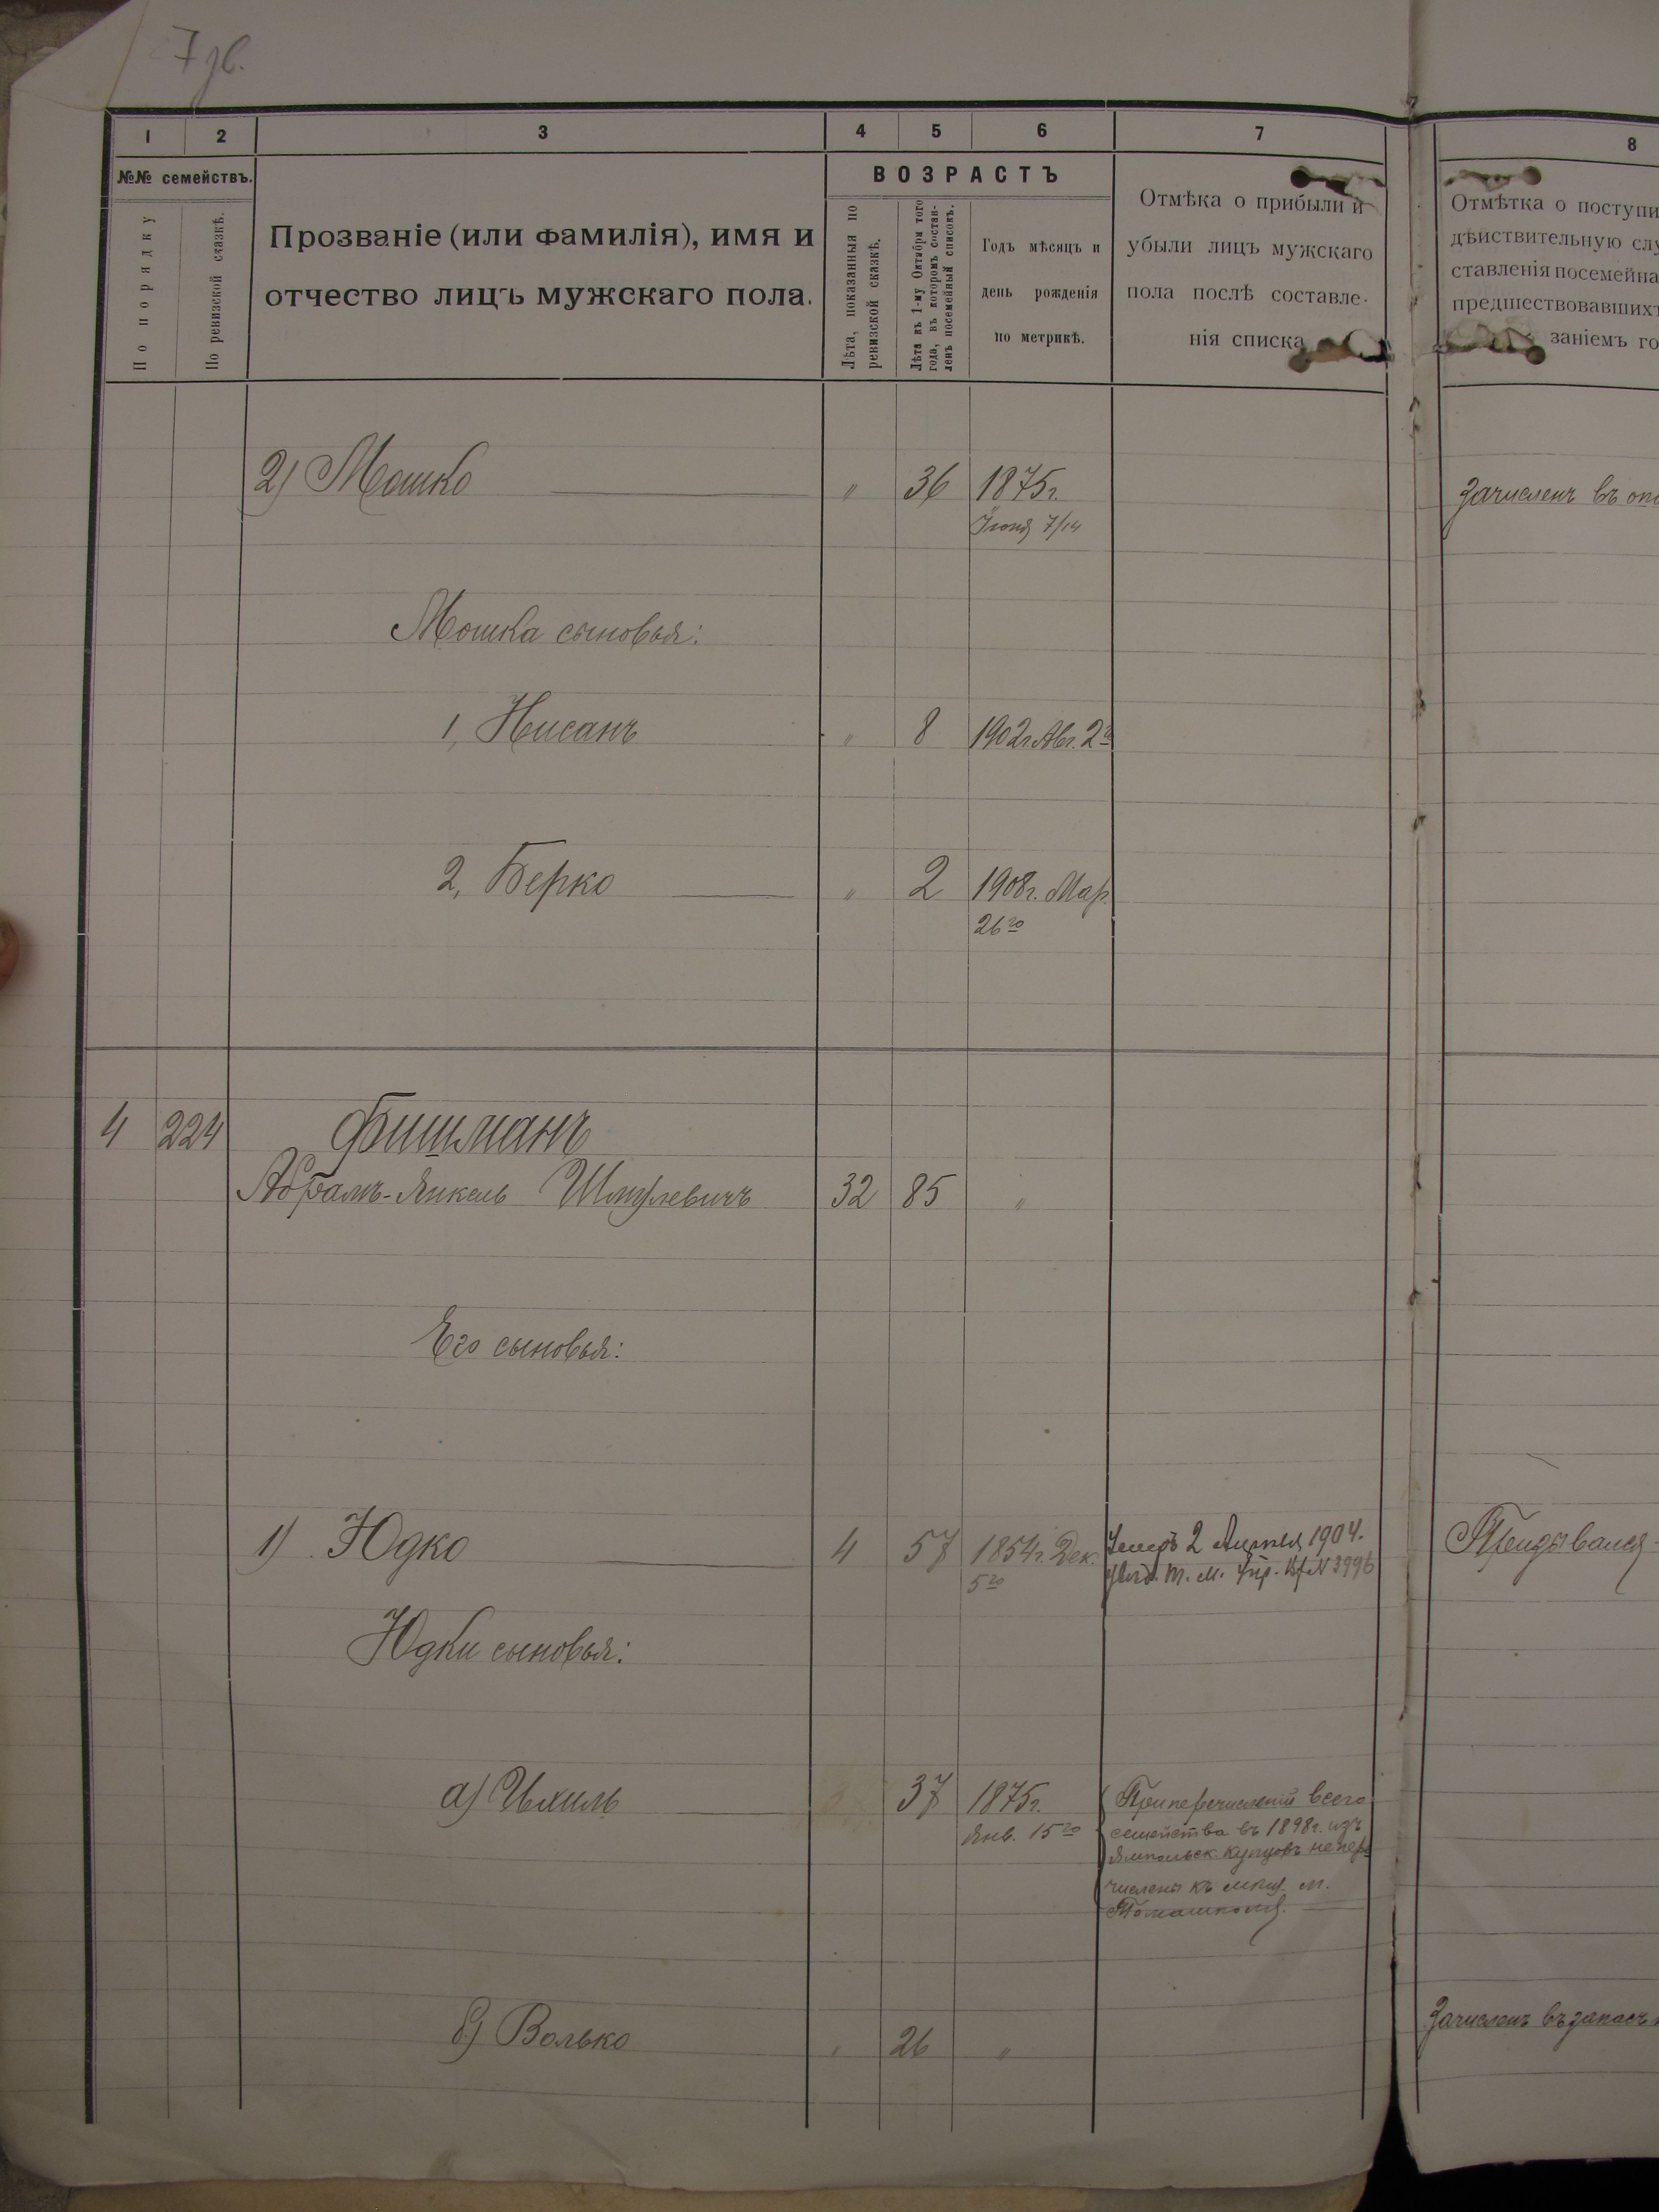 7 зв.
1 2 3 4 5 6 7 8
№№ семействъ.
По порядку
По ревизской сказкѣ.
Прозваніе (или фамилія), имя и
отчество лицъ мужскаго пола.
ВОЗРАСТЪ
Лѣта, показанныя по
ревизской сказкѣ.
Лѣта къ 1-му Октября того
года, въ которомъ состав-
ленъ посемейный списокъ.
Годъ мѣсяцъ и
день рожденія
по метрикѣ.
Отмѣка о прибыли и
убыли лицъ мужскаго
пола послѣ составле-
нія списка
Отмѣтка о поступи
дѣйствительную слу
ставленія посемейна
предшествовавшихъ
заніемъ го
2) Мошко " 36 1875г.
Іюня 7/14
Зачисленъ въ опо
Мошка сыновья:
1, Нисанъ " 8 1902г. Авг. 2го
2, Берко " 2 1908г. Мар.
26го
4 224 Фишманъ
Абрамъ-Янкель Шмулевичъ 32 85 "
Его сыновья:
1) Юдко 4 57 1854г. Дек.
5го
Умеръ 2 Апрѣля 1904.
М. М. Упр. № 3996
Призывался
Юдки сыновья:
а) Ихиль 37 1875г.
Янв. 15го
При перечисленіи всего
семейства въ 1898г. изъ
Ямпольск. купцовъ не пере
числены къ мѣщ. м.
Томашполя.
б) Волько " 26 "
Зачисленъ въ запасъ